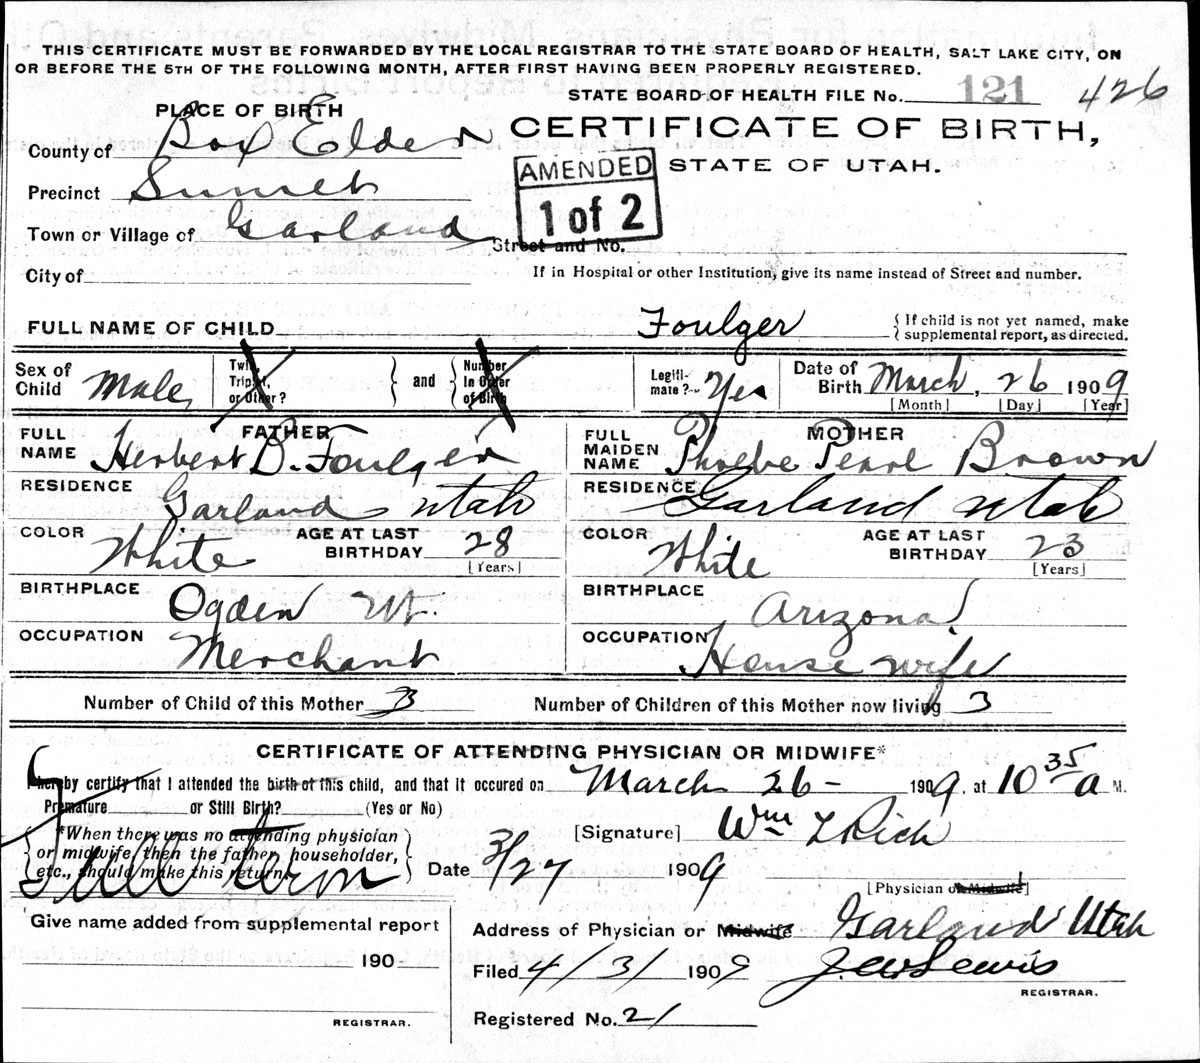 THIS CERTIFICATE MUST BE FORWARDED BY THE LOCAL REGISTRAR TO THE STATE BOARD OF HEALTH, SALT LAKE CITY, ON
OR BEFORE THE 5TH OF THE FOLLOWING MONTH, AFTER FIRST HAVING BEEN PROPERLY REGISTERED.
STATE BOARD OF HEALTH FILE No. 121 426
PLACE OF BIRTH
CERTIFICATE OF BIRTH,
STATE OF UTAH.
AMENDED
1 of 2
County of Box Elder
Precinct Sunset
Town or Village of Garland Street and No.
City of If in Hospital or other Institution, give its name instead of Street and number.
FULL NAME OF CHILD Foulger {If child is not yet named, make
supplemental report, as directed.
Sex of Child Male Twin, Triplet, or Other? } and { Number in Order of Birth Legiti-mate? Yes Date of Birth March, 26 1909
[Month] [Day] [Year]
FATHER
FULL NAME Herbert D. Foulger
RESIDENCE Garland Utah
COLOR White AGE AT LAST BIRTHDAY 28
[Years]
BIRTHPLACE Ogden Ut.
OCCUPATION Merchant
MOTHER
FULL MAIDEN NAME Phoebe Pearl Brown
RESIDENCE Garland Utah
COLOR White AGE AT LAST BIRTHDAY 23
[Years]
BIRTHPLACE Arizona
OCCUPATION House wife
Number of Child of this Mother 3 Number of Children of this Mother now living 3
CERTIFICATE OF ATTENDING PHYSICIAN OR MIDWIFE*
I hereby certify that I attended the birth of this child, and that it occured on March 26- 1909, at 10 35 a M.
Premature or Still Birth? (Yes or No)
Full term
{*When there was no attending physician
or midwife, then the father, householder,
etc., should make this return.}
[Signature] Wm L Rich
Date 3/27 1909
[Physician or Midwife]
Give name added from supplemental report
190
REGISTRAR.
Address of Physician or Midwife Garland Utah
Filed 4/3/ 1909 J. W. Lewis
REGISTRAR.
Registered No. 21